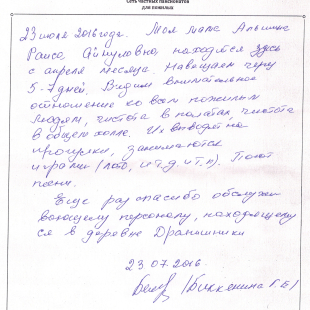 Сеть частных пансионатов
для пожилых
23 июля 2016 года. Моя мама
Раиса находится здесь
с апреля месяца. Навещаем через
5-7 дней. Видим внимательное
отношение ко всем пожилым
людям, чистота в палатах, чистота
в общем холле. Их выводят на
прогулки, занимаются
играми (лото, и т.д. и т.п). Поют
песни.
Еще раз спасибо обслужи
вающему персоналу, находящему
ся в деревне Дранишники
23.07.2016.